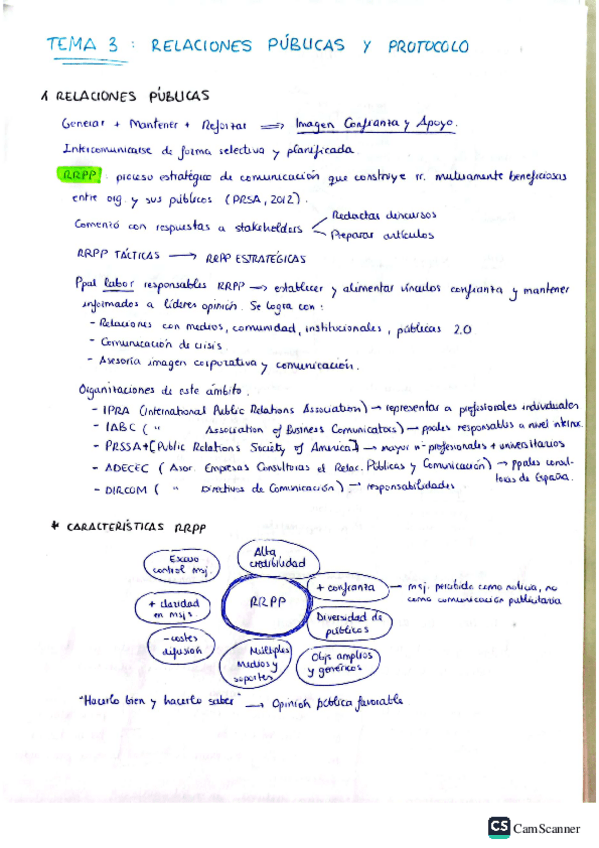 TEMA 3 : RELACIONES PÚBLICAS Y PROTOCOLO
1 RELACIONES PÚBLICAS
Generar + Mantener + Reforzar ⟹ Imagen Confianza y Apoyo.
Intercomunicarse de forma selectiva y planificada
RRPP : proceso estratégico de comunicación que construye rr. mutuamente beneficiosas
entre org. y sus públicos (PRSA, 2012).
Comenzó con respuestas a stakeholders < Redactar discursos
Preparar artículos
RRPP TÁCTICAS ⟶ RRPP ESTRATÉGICAS
Ppal labor responsables RRPP ⟶ establecer y alimentar vínculos confianza y mantener
informados a líderes opinión. Se logra con :
- Relaciones con medios, comunidad, institucionales, públicas 2.0
- Comunicación de crisis.
- Asesoría imagen corporativa y comunicación.
Organizaciones de este ámbito.
- IPRA (International Public Relations Association) → representar a profesionales individuales
- IABC ( " Association of Business Comunicators) → ppales responsables a nivel
- PRSSA + [Public Relations Society of America] → mayor nº profesionales + universitarios
- ADECEC ( Asor. Empresas Consultoras el Relac. Públicas y Comunicación) → ppales consul-
toras de España.
- DIRCOM ( " Directivos de Comunicación) → responsabilidades
* CARACTERÍSTICAS RRPP
Alta
credibilidad
Escaso
control msj.
+ confianza — msj. percibido como noticia, no
como comunicación publicitaria
RRPP
+ claridad
en msjs
Diversidad de
públicos
- costes
difusión
Múltiples
Medios y
soportes
Objs amplios
y genéricos
"Hacerlo bien y hacerlo saber" ⟶ Opinión pública favorable
CS CamScanner